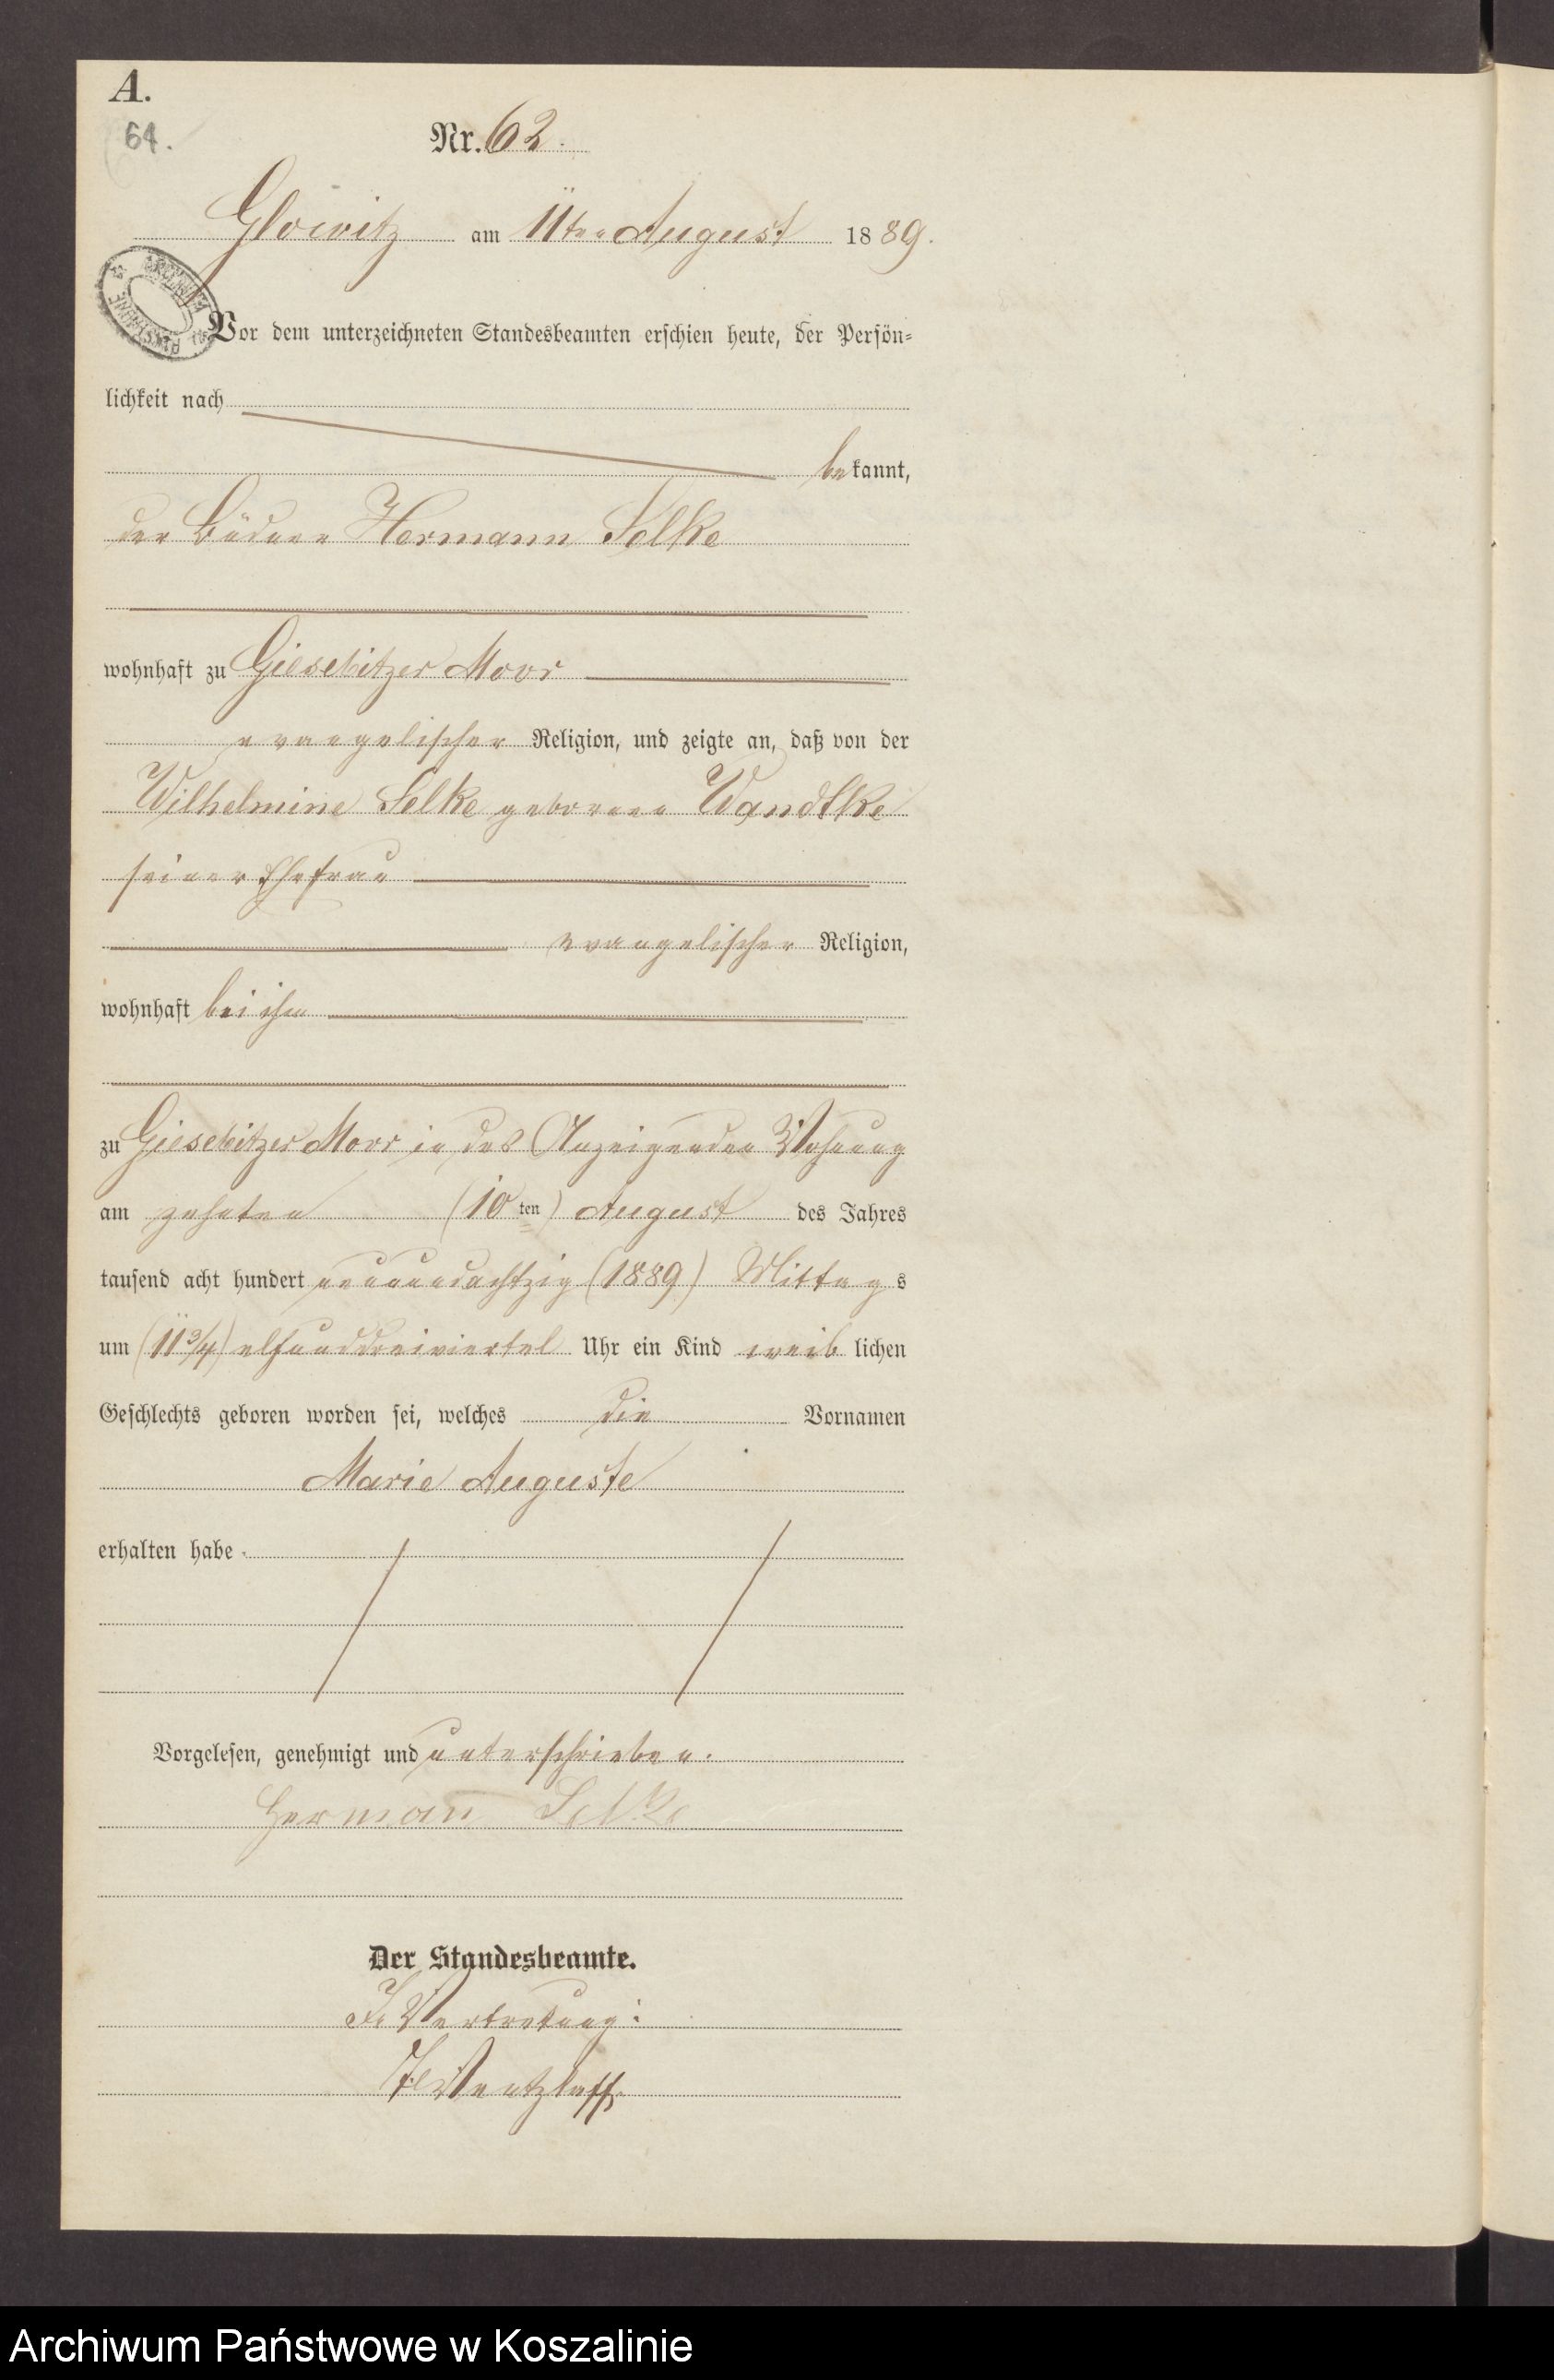 A.
64.
Nr. 62.
Glowitz am 11ten August 1889.
Vor dem unterzeichneten Standesbeamten erschien heute, der Persön-
lichkeit nach
bekannt,
der Büdner Hermann Selke
wohnhaft zu Giesebitzer Moor
evangelischer Religion, und zeigte an, daß von der
Wilhelmine Selke geborene Wandtke
seiner Ehefrau
evangelischer Religion,
wohnhaft bei ihm
zu Giesebitzer Moor in des Anzeigenden Wohnung
am zehnten (10ten) August des Jahres
tausend acht hundert neunundachtzig (1889) Mittags
um (11 3/4) elfunddreiviertel Uhr ein Kind weiblichen
Geschlechts geboren worden sei, welches die Vornamen
Marie Auguste
erhalten habe.
Vorgelesen, genehmigt und unterschrieben.
Herman Selke
Der Standesbeamte.
In Vertretung:
Wentzlaff.
Archiwum Państwowe w Koszalinie